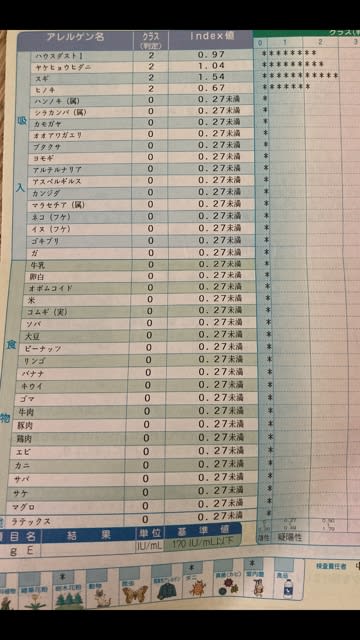 アレルゲン名 クラス(判定) Index値 クラス(判
0 1 2 3
ハウスダスト1 2 0.97 ********
ヤケヒョウヒダニ 2 1.04
スギ 2 1.54
ヒノキ 2 0.67
ハンノキ（属） 0 0.27未満 *
シラカンバ（属） 0 0.27未満 *
カモガヤ 0 0.27未満 *
オオアワガエリ 0 0.27未満 *
ブタクサ 0 0.27未満 *
ヨモギ 0 0.27未満 *
アルテルナリア 0 0.27未満 *
アスペルギルス 0 0.27未満 *
カンジダ 0 0.27未満 *
マラセチア（属） 0 0.27未満 *
ネコ（フケ） 0 0.27未満 *
イヌ（フケ） 0 0.27未満 *
ゴキブリ 0 0.27未満 *
ガ 0 0.27未満 *
吸入
牛乳 0 0.27未満 *
卵白 0 0.27未満 *
オボムコイド 0 0.27未満 *
米 0 0.27未満 *
コムギ（実） 0 0.27未満 *
ソバ 0 0.27未満 *
大豆 0 0.27未満 *
ピーナッツ 0 0.27未満 *
リンゴ 0 0.27未満 *
バナナ 0 0.27未満 *
キウイ 0 0.27未満 *
ゴマ 0 0.27未満 *
牛肉 0 0.27未満 *
豚肉 0 0.27未満 *
鶏肉 0 0.27未満 *
エビ 0 0.27未満 *
カニ 0 0.27未満 *
サバ 0 0.27未満 *
サケ 0 0.27未満 *
マグロ 0 0.27未満 *
食物
ラテックス 0 0.27未満 *
項目名 結果 単位 基準値
疑陽性
gE IU/mL 170 IU/mL以下
検査責任者
樹木花粉 動物 昆虫 ダニ 真菌(カビ) 室内塵 食品